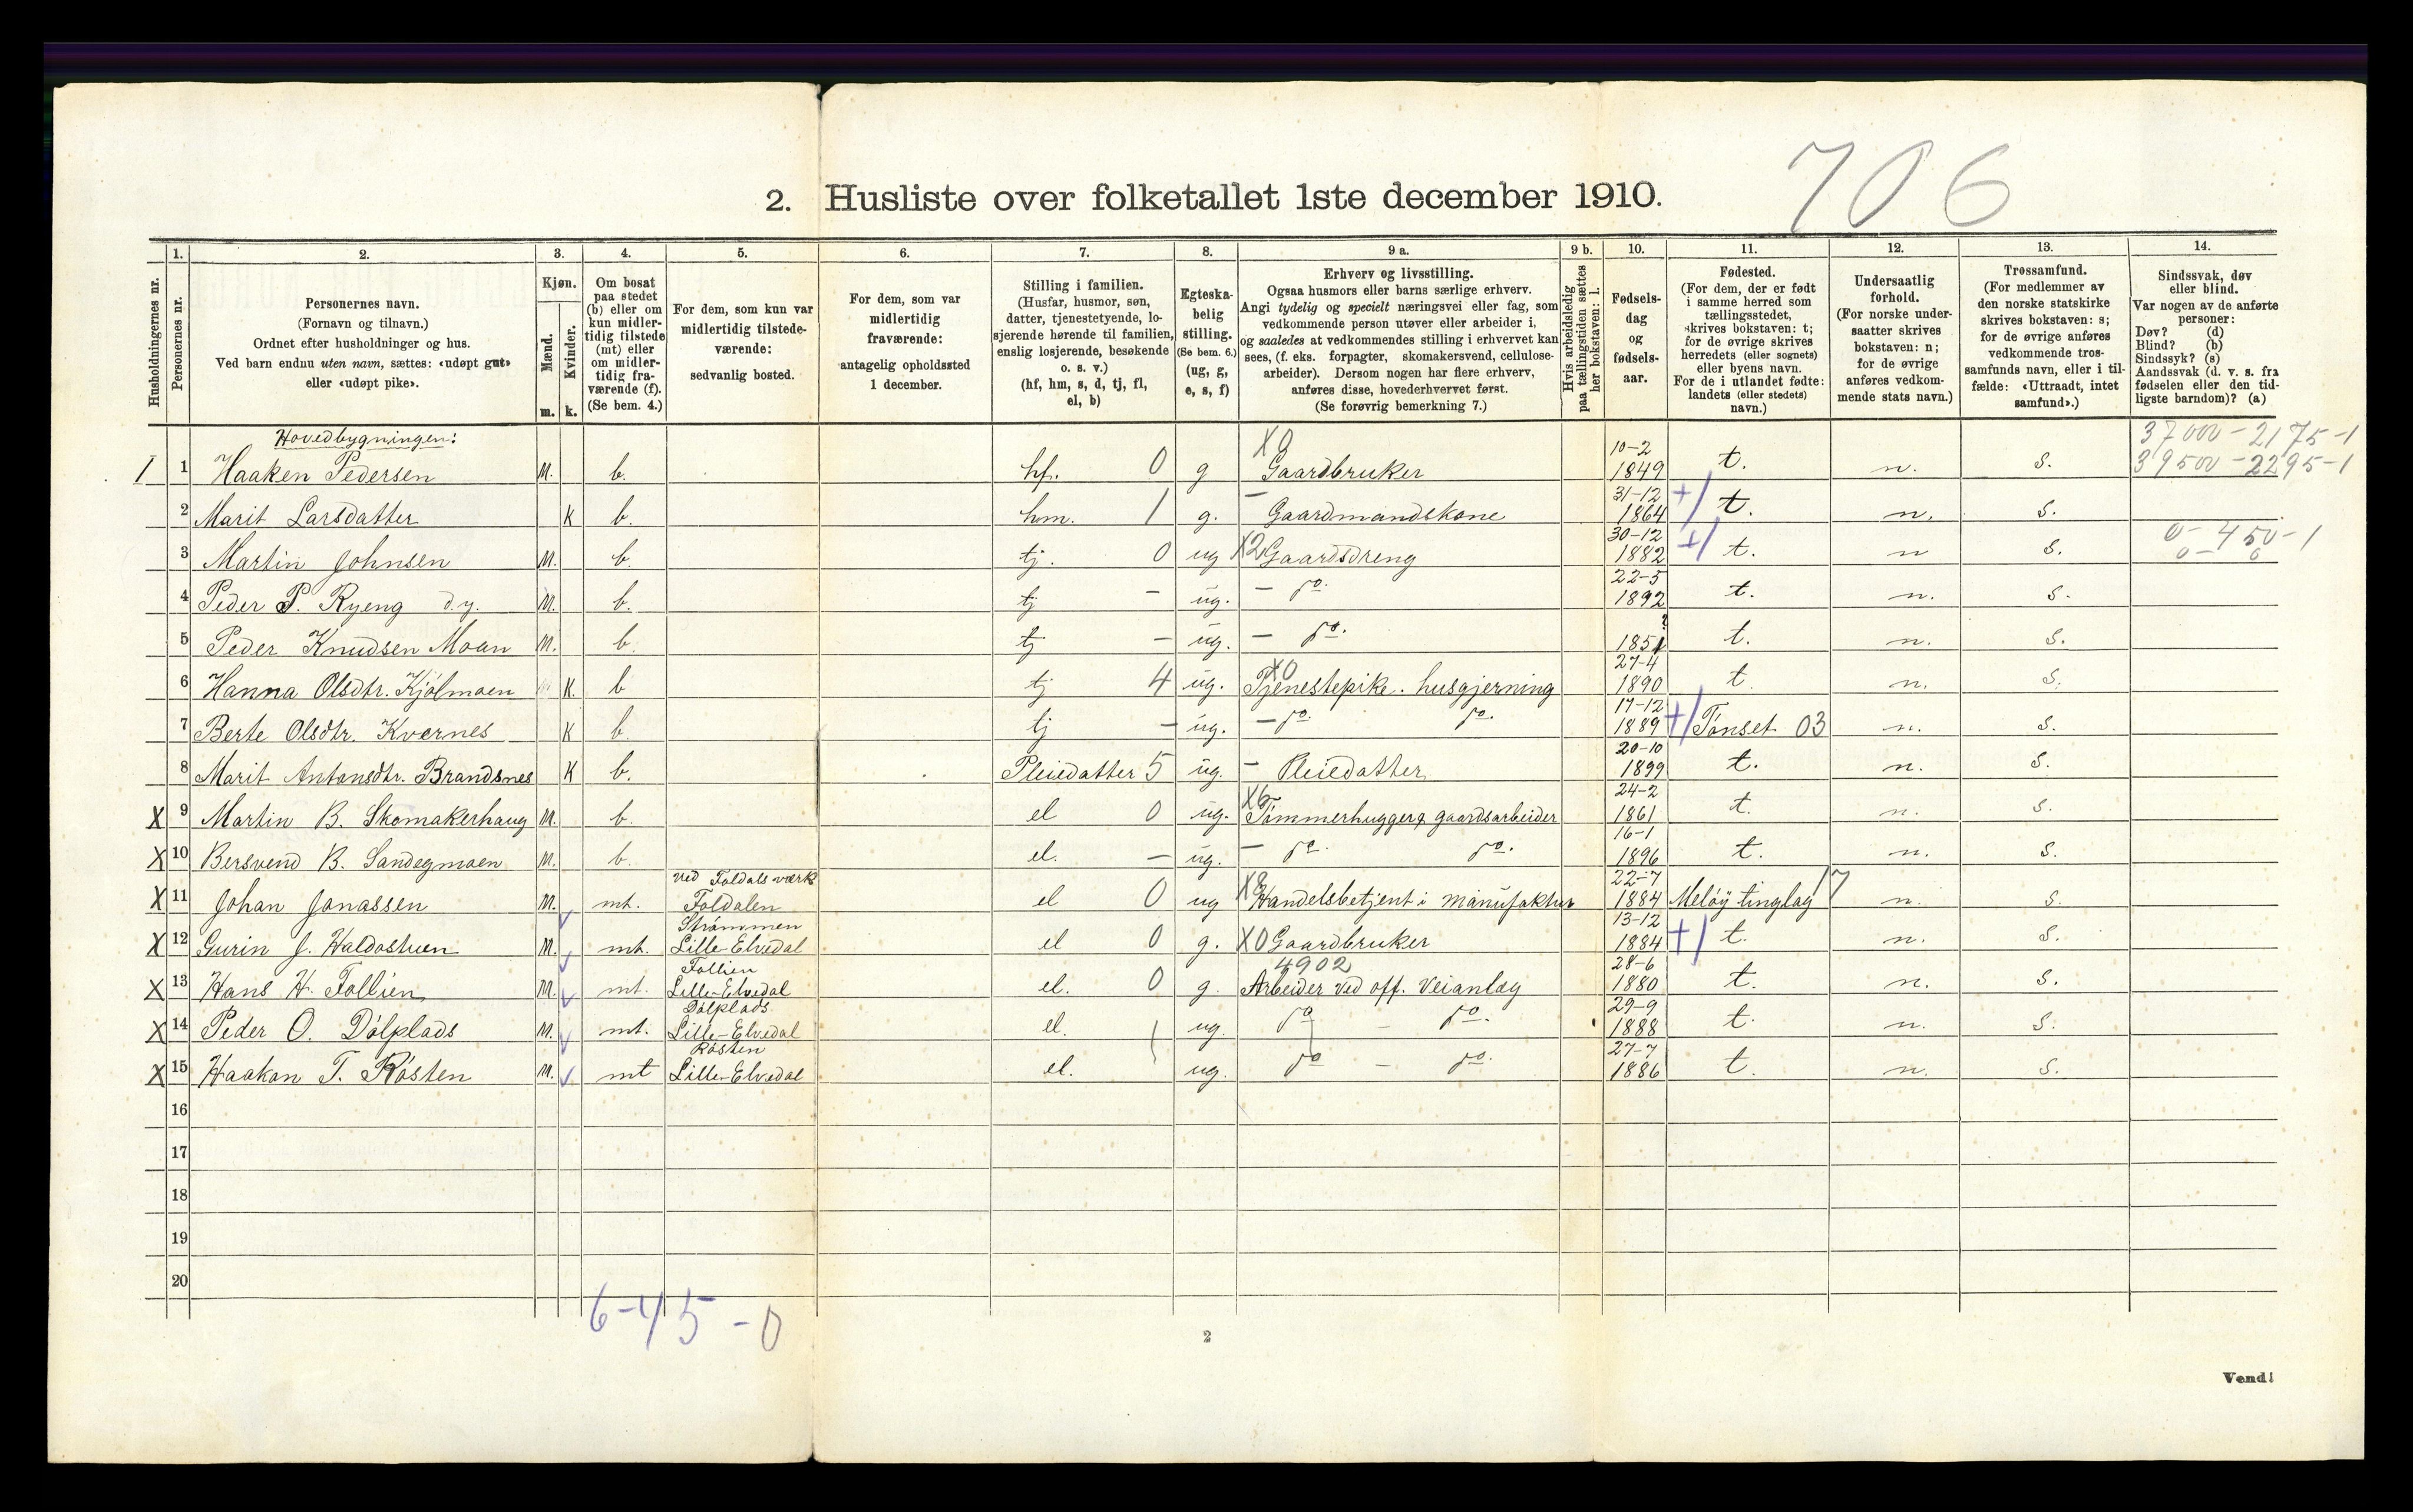 706
2. Husliste over folketallet 1ste december 1910.
1. 2. 3. 4. 5. 6. 7. 8. 9 a. 9 b. 10. 11. 12. 13. 14.
Husholdningernes nr.
Personernes nr.
Personernes navn.
(Fornavn og tilnavn.)
Ordnet efter husholdninger og hus.
Ved barn endnu uten navn, sættes: «udøpt gut»
eller «udøpt pike».
Kjøn.
Mænd.
m.
Kvinder.
k.
Om bosat
paa stedet
(b) eller om
kun midler-
tidig tilstede
(mt) eller
om midler-
tidig fra-
værende (f).
(Se bem. 4.)
For dem, som kun var
midlertidig tilstede-
værende:
sedvanlig bosted.
For dem, som var
midlertidig
fraværende:
antagelig opholdssted
1 december.
Stilling i familien.
(Husfar, husmor, søn,
datter, tjenestetyende, lo-
sjerende hørende til familien,
enslig losjerende, besøkende
o. s. v.)
(hf, hm, s, d, tj, fl,
el, b)
Egteska-
belig
stilling.
(Se bem. 6.)
(ug, g,
e, s, f)
Erhverv og livsstilling.
Ogsaa husmors eller barns særlige erhverv.
Angi tydelig og specielt næringsvei eller fag, som
vedkommende person utøver eller arbeider i,
og saaledes at vedkommendes stilling i erhvervet kan
sees, (f. eks. forpagter, skomakersvend, cellulose-
arbeider). Dersom nogen har flere erhverv,
anføres disse, hovederhvervet først.
(Se forøvrig bemerkning 7.)
Hvis arbeidsledig
paa tællingstiden sættes
her bokstaven: l.
Fødsels-
dag
og
fødsels-
aar.
Fødested.
(For dem, der er født
i samme herred som
tællingsstedet,
skrives bokstaven: t;
for de øvrige skrives
herredets (eller sognets)
eller byens navn.
For de i utlandet fødte:
landets (eller stedets)
navn.)
Undersaatlig
forhold.
(For norske under-
saatter skrives
bokstaven: n;
for de øvrige
anføres vedkom-
mende stats navn.)
Trossamfund.
(For medlemmer av
den norske statskirke
skrives bokstaven: s;
for de øvrige anføres
vedkommende tros-
samfunds navn, eller i til-
fælde: «Uttraadt, intet
samfund».)
Sindssvak, døv
eller blind.
Var nogen av de anførte
personer:
Døv? (d)
Blind? (b)
Sindssyk? (s)
Aandssvak (d. v. s. fra
fødselen eller den tid-
ligste barndom)? (a)
Hovedbygningen:
37000-2175-1
1 1 Haaken Pedersen M. b. hf. 0 g X0 Gaardbruker 10-2 1849 t. n. s. 39500-2295-1
2 Marit Larsdatter K b. hm. 1 g. - Gaardmandskone 31-12 1864 t. n. s.
3 Martin Johnsen M. b. tj. 0 ug X2 Gaardsdreng 30-12 1882 t. n s. 0-450-1
4 Peder P. Ryeng d.y. M. b. tj - ug. - do. 22-5 1892 t. n. s.
5 Peder Knudsen Moan M. b. tj - ug. - do. ? 1851 t. n. s.
6 Hanna Olsdtr. Kjølmoen K. b tj 4 ug. X0 Tjenestepike. husgjerning 27-4 1890 t. n. s.
7 Berte Olsdtr. Kvernes K b. tj - ug. - do. do. 17-12 1889 Tønset 03 n. s.
8 Marit Antonsdtr. Brandsnes K b. Pleiedatter 5 ug. - Pleiedatter 20-10 1899 t. n. s.
X 9 Martin B. Skomakerhaug M. b. el 0 ug. X6 Tømmerhugger & gaardsarbeider 24-2 1861 t. n. s.
X 10 Bersvend B. Sandegmoen M. b. el. - ug. - do. do. 16-1 1896 t. n. s.
X 11 Johan Jonassen M. mt. ved Foldals værk Foldalen el 0 ug X8 Handelsbetjent i manufaktur 22-7 1884 Meløy tinglag 17 n. s.
X 12 Gurin J. Haldostuen M. mt. Strømmen Lille-Elvedal el 0 g. X0 Gaardbruker 13-12 1884 t. n. s.
X 13 Hans H. Follien M. mt. Follien Lille-Elvedal el. 0 g. 4902 Arbeider ved off. Veianlæg 28-6 1880 t. n. s.
X 14 Peder O. Dølplads M. mt. Dølplads Lille-Elvedal el. ug. do - do. 29-9 1888 t. n. s.
X 15 Haakon T. Røsten M. mt Røsten Lille-Elvedal el. ug. do - do. 27-7 1886 t. n. s.
16
17
18
19
20
6-45-0
2
Vend!